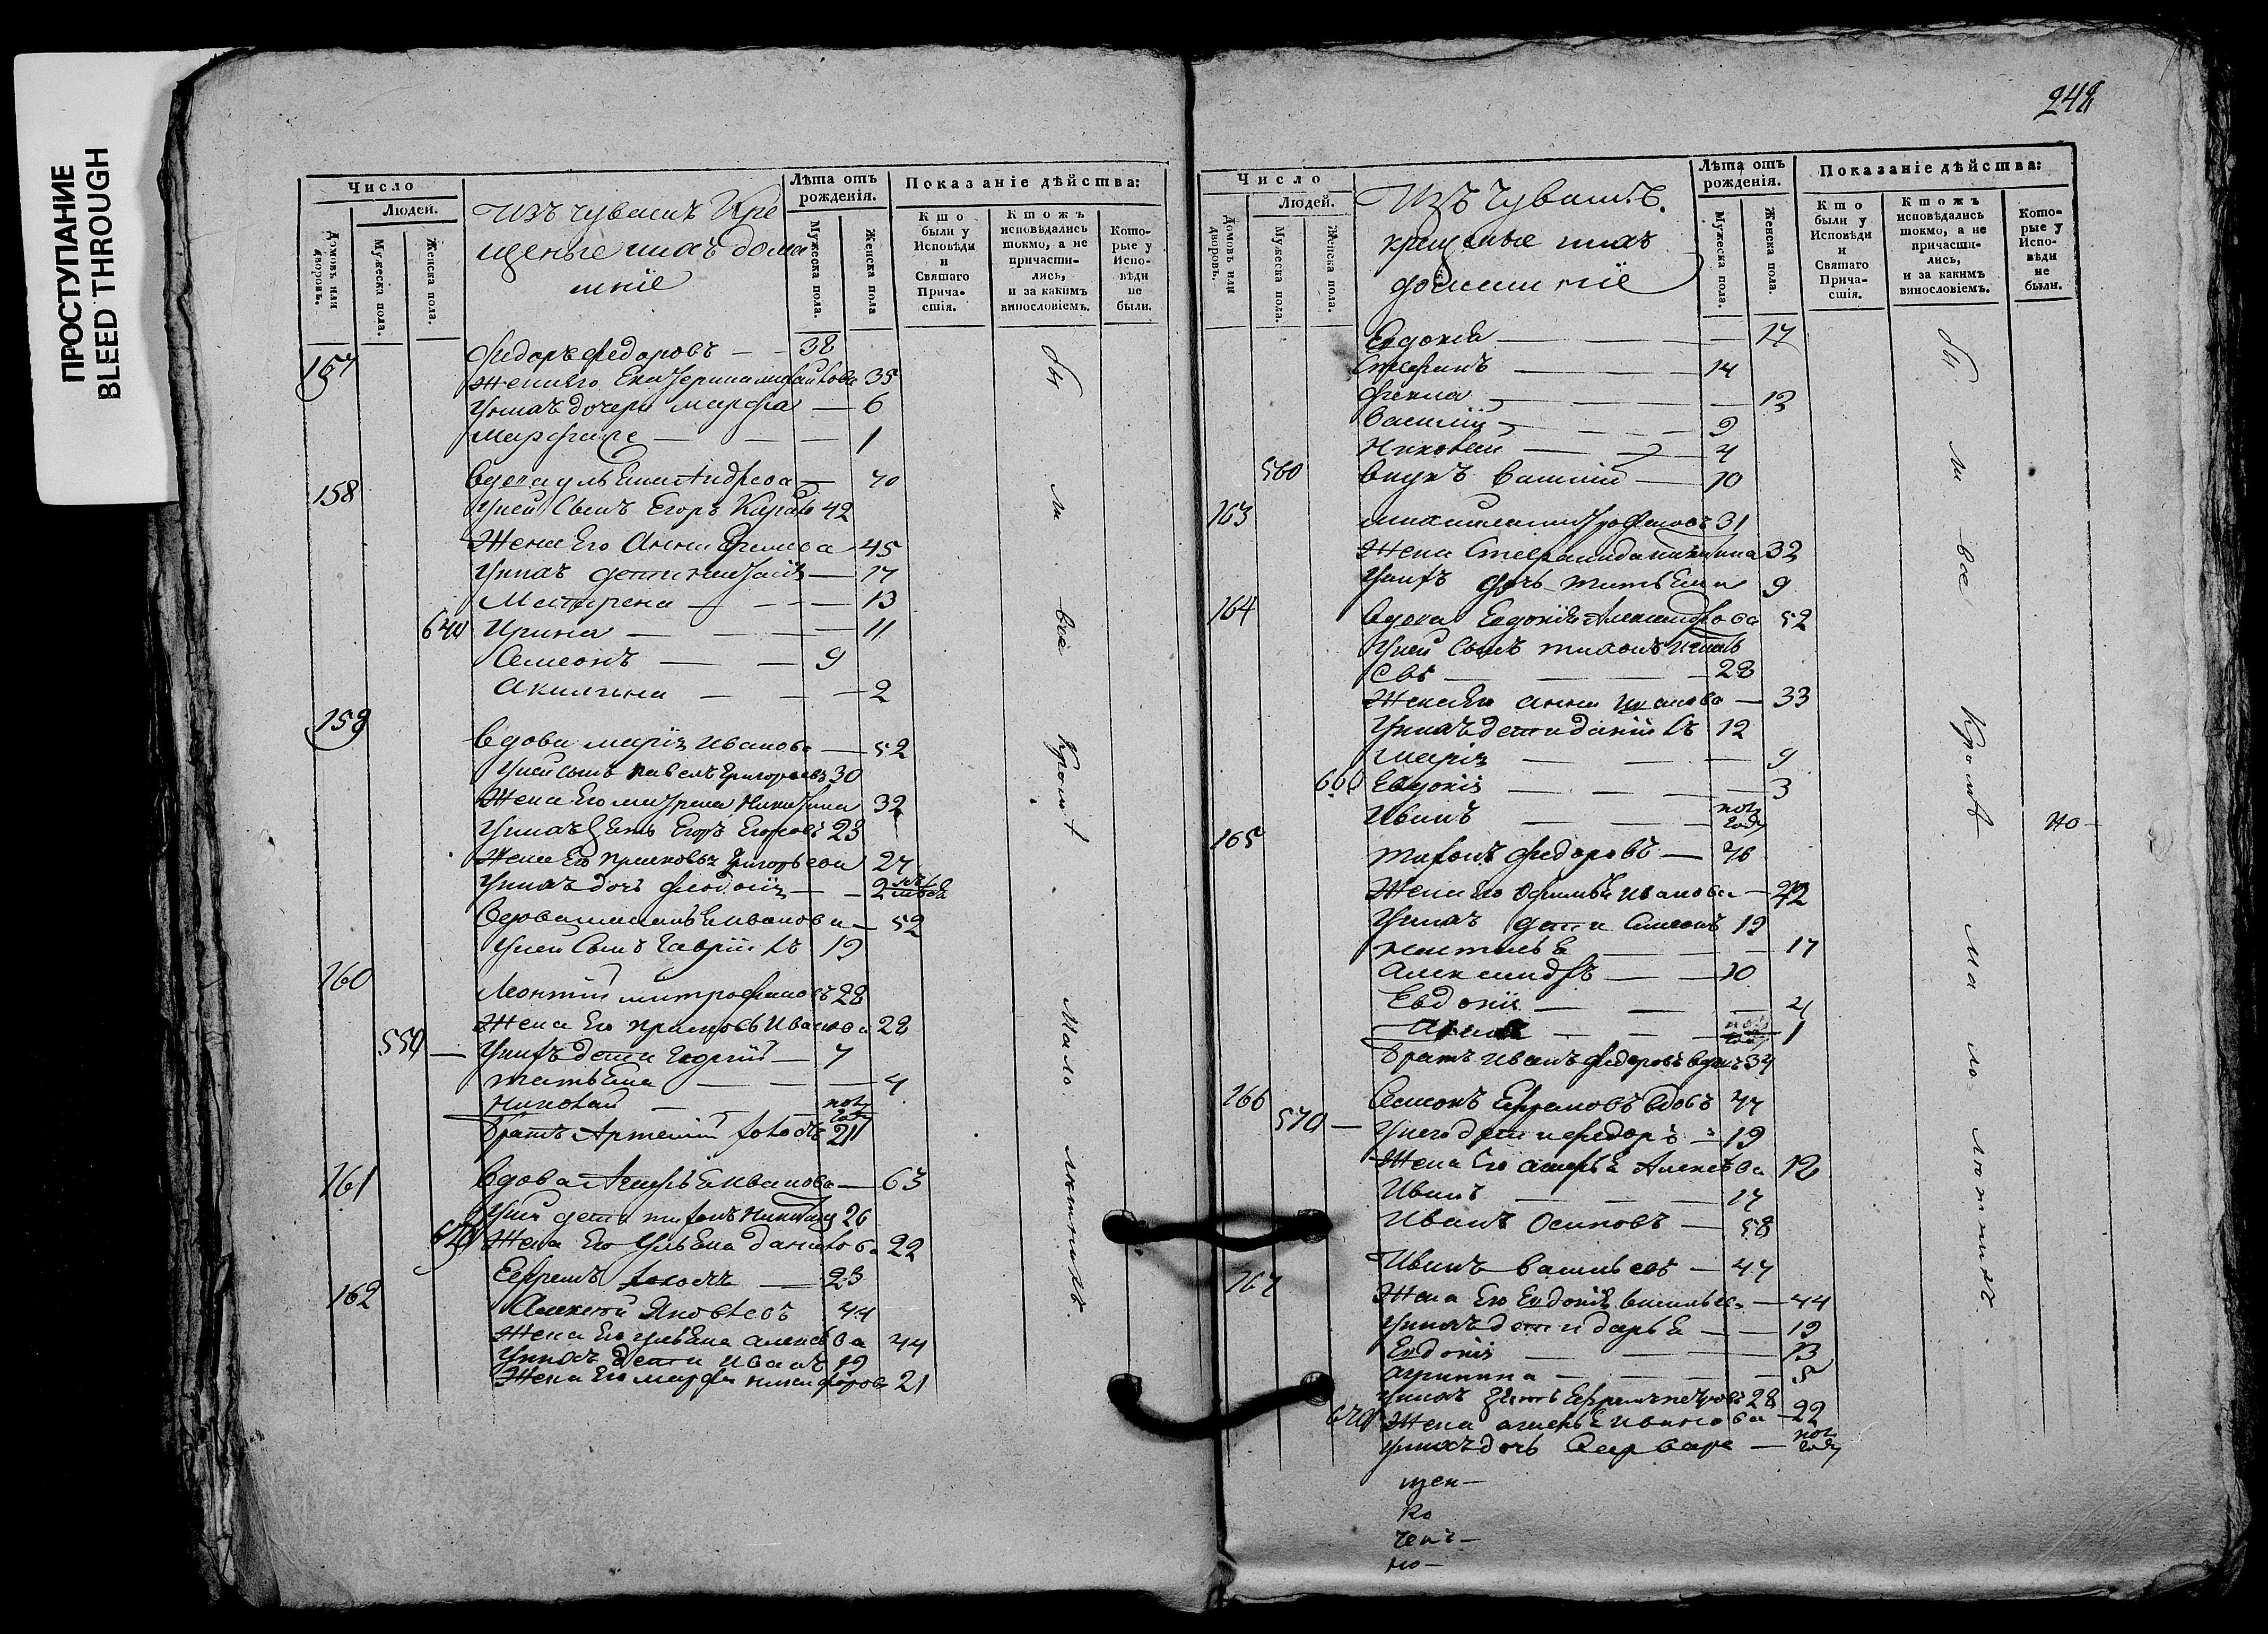 ПРОСТУПАНИЕ
BLEED THROUGH
Число
Людей.
Домовъ или дворовъ.
Мужеска пола.
Женска пола.
Изъ чувашъ Кре
щеные ихъ дома
шніе
Лѣта отъ рожденія.
Мужеска пола.
Женска пола
Показаніе дѣйства:
Кто были у Исповѣди и Святаго Причастія.
Ктожъ исповѣдались токмо, а не причастились, и за какимъ винословіемъ.
Которые у Исповѣди не были.
157 Федоръ Федоровъ — 38
Жена Его Екатерина 35
Унихъ дочери Марфа — 6
1
158 Вдова Ульяна Андреева — 70
Уней Сынъ Егоръ 42
Жена Его Анна 45
Унихъ дети — 17
Матрена — 13
640 Ирина — 11
Семеонъ — 9
Акилина — 2
159 Вдова Марія Иванова — 52
Уней сынъ Павелъ Григорьевъ 30
Жена Его Матрена Никитина 32
Унихъ Зять Егоръ Егоровъ 23
Жена Его Прасковья Григорьева 27
Унихъ дочь Феодосія — 2
Вдова Иванова — 52
Уней Сынъ Гавріилъ 19
160 Леонтій Митрофановъ 28
Жена Его Иванова 28
550 — Унихъ дети Георгій — 7
Татьяна — 4
Николай — пол года
Братъ Артемій холостъ 21
161 Вдова Иванова — 63
Уней дети Тихонъ Никитинъ 26
650 Жена Его Ульяна Данилова 22
Ефремъ холостъ — 23
162 Алексей Яковлевъ 44
Жена Его Ульяна Алексѣева 44
Унихъ дети Иванъ 19
Жена Его Марфа Никифорова 21
бы ли все кроме малолетнихъ
242
Число
Людей.
Домовъ или дворовъ.
Мужеска пола.
Женска пола.
Изъ Чувашъ
крещеные ихъ
домашніе
Лѣта отъ рожденія.
Мужеска пола.
Женска пола.
Показаніе дѣйства:
Кто были у Исповѣди и Святаго Причастія.
Ктожъ исповѣдались токмо, а не причастились, и за какимъ винословіемъ.
Которые у Исповѣди не были.
Евдокія — 17
Стефанъ — 14
Фекла — 12
Василій — 9
Николай — 4
560 Внукъ Василій — 10
163 31
Жена Степанида Никитина 32
Унихъ дочь Татьяна 9
164 Вдова Евдокія Александрова 52
Уней Сынъ Тихонъ
28
Жена Его Анна Иванова — 33
Унихъ дети Даніилъ 12
Марія — 9
660 Евдокія — 3
Иванъ — пол года
165 Тихонъ Федоровъ — 46
Жена Его Иванова — 42
Унихъ дети Симеонъ 19
Наталья — 17
Александръ — 10
Евдокія — 4
1
Братъ Иванъ Федоровъ 34
166 Семионъ Ефремовъ вдовъ 47
570 — Унего дети Федоръ — 19
Жена Его Алексѣева
Иванъ — 17
Иванъ Осиповъ — 58
167 Иванъ Васильевъ — 47
Жена Его Евдокія Васильева — 44
Унихъ дети Дарья — 19
Евдокія — 13
Агрипина — 5
Унихъ Зять Ефремъ Петровъ 28
670 Жена Иванова — 22
Унихъ дочь Варвара — пол года
бы ли все кроме малолетнихъ
но —
щен —
ко
чен —
но —